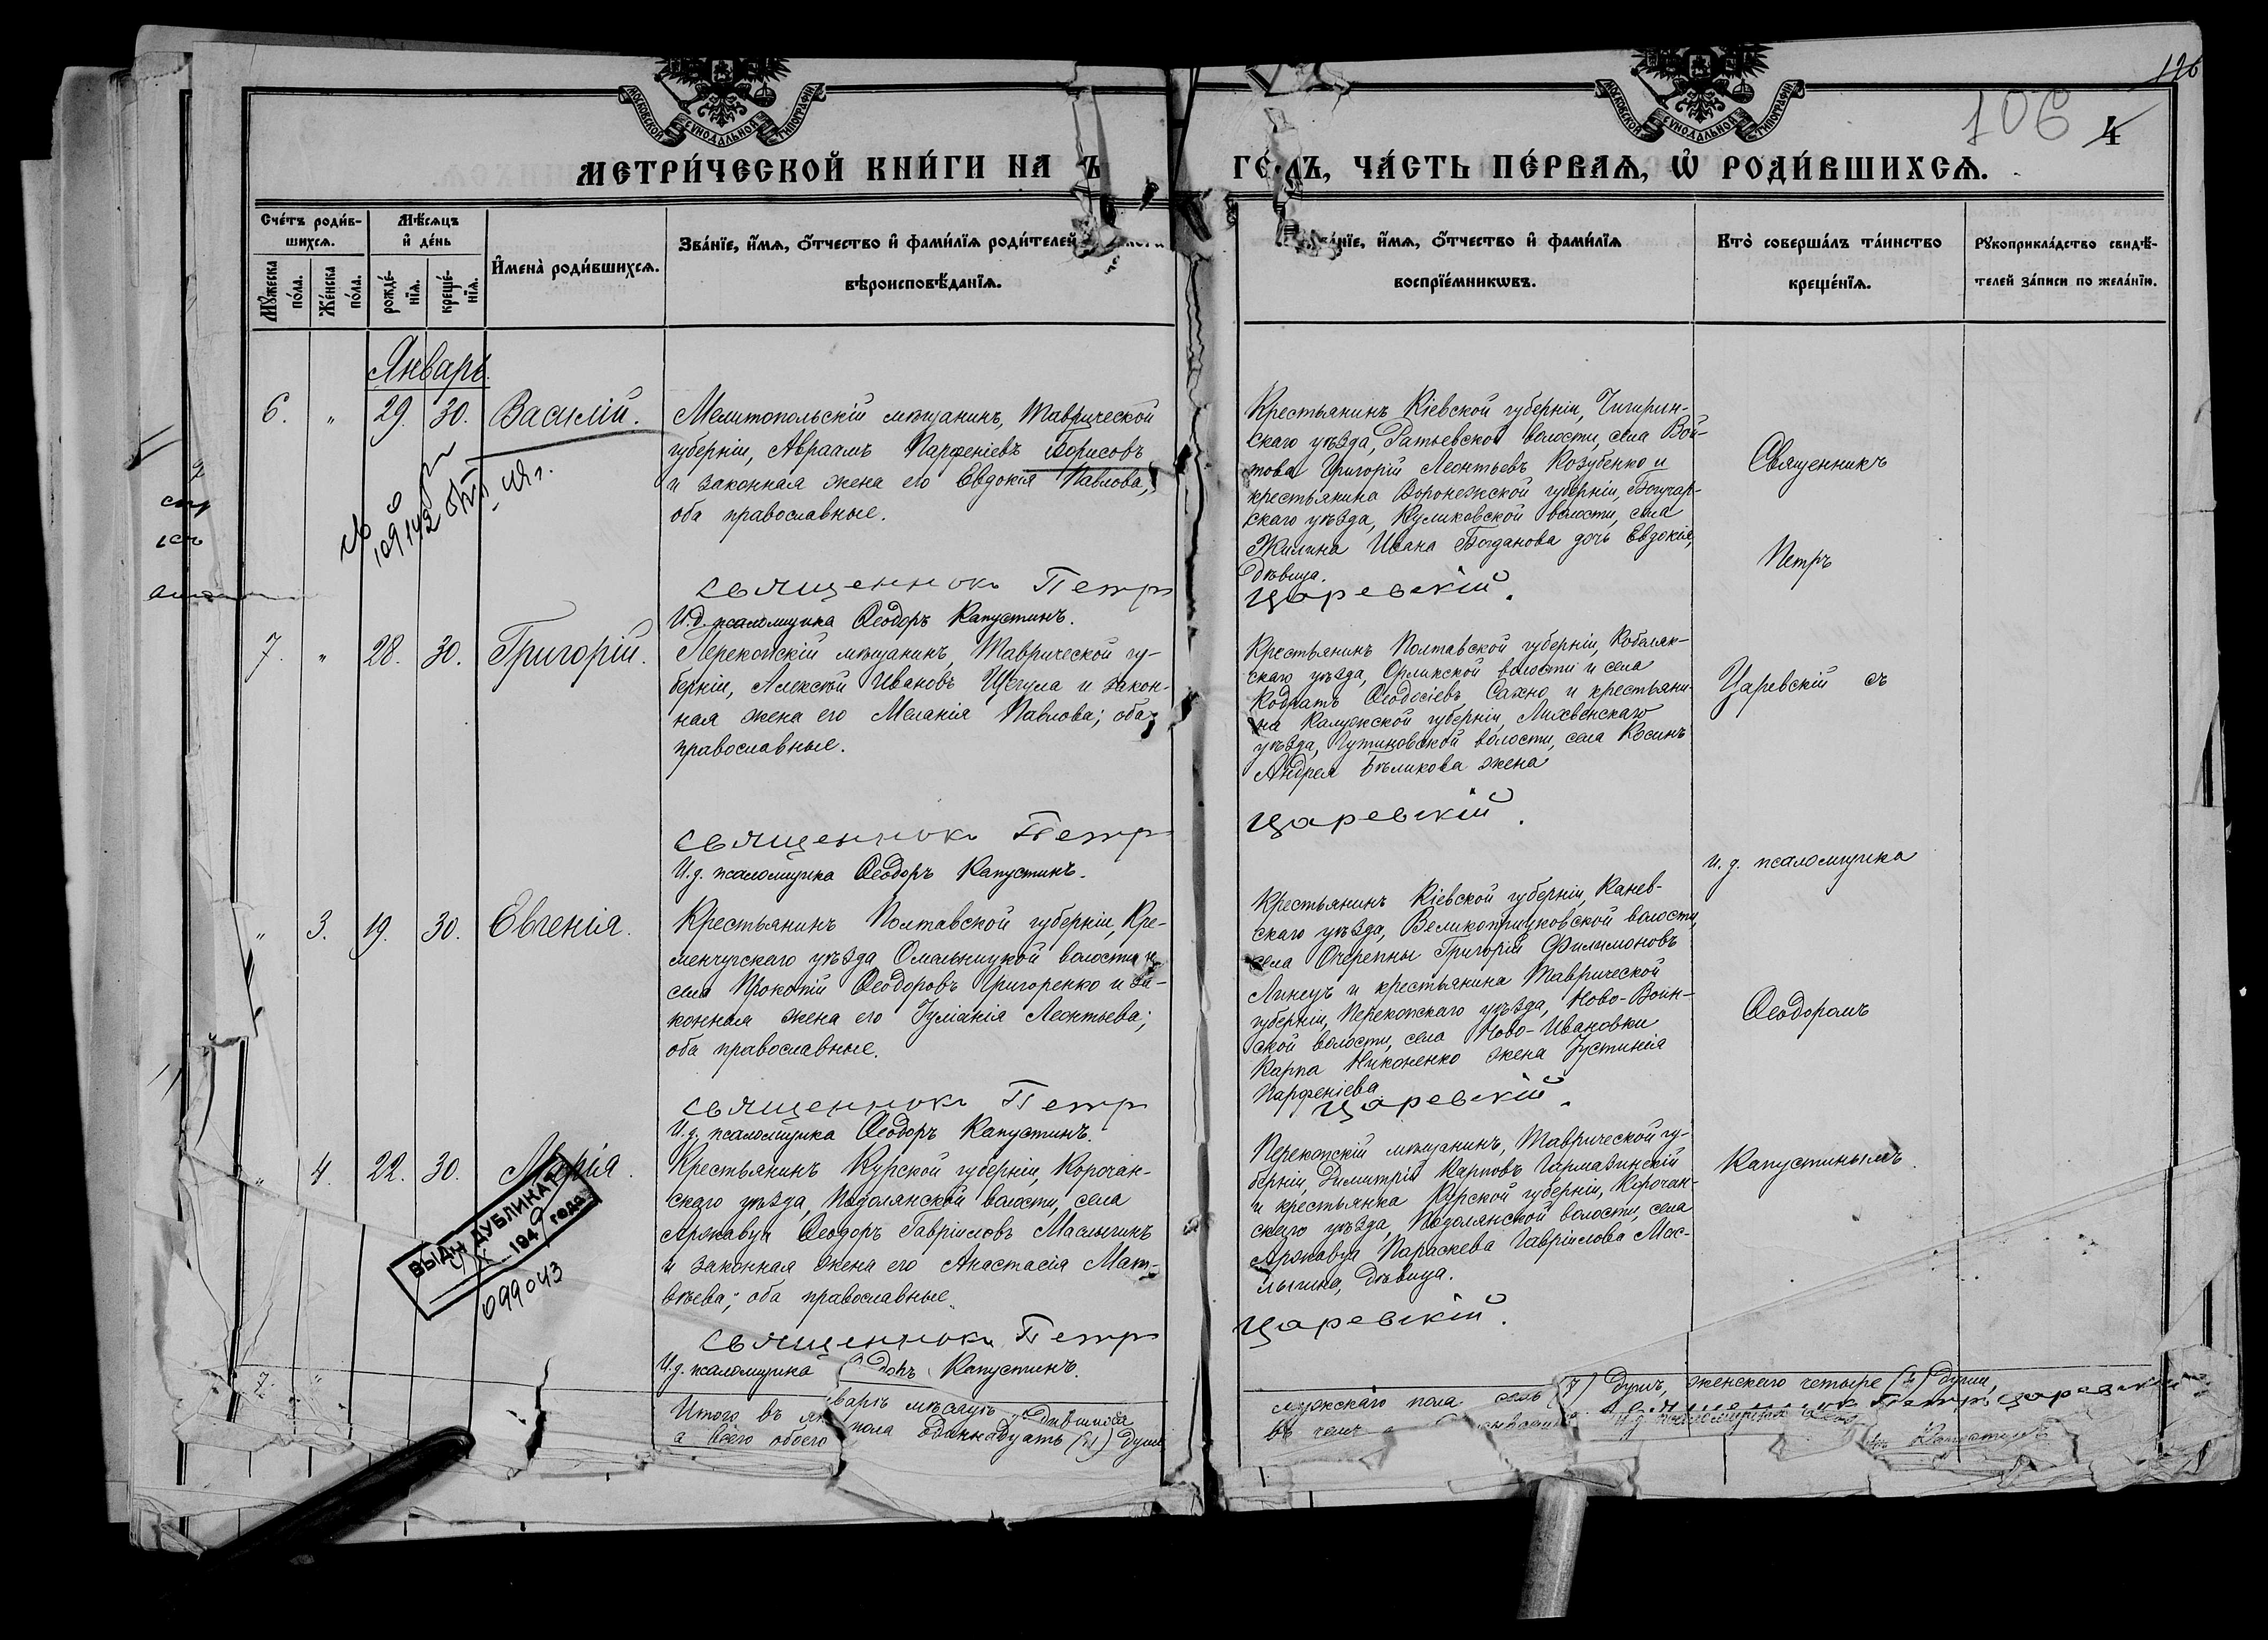 126
106 4
МОСКОВСКОЙ СѴНОДАЛЬНОЙ ТИПОГРАФІИ
МОСКОВСКОЙ СѴНОДАЛЬНОЙ ТИПОГРАФІИ
МЕТРИ́ЧЕСКОЙ КНИ́ГИ НА
ЧА́СТЬ ПЕ́РВАѦ, Ѿ РОДИ́ВШИХСѦ.
Сче́тъ роди́вшихсѧ.
Мꙋ́жеска по́ла.
Же́нска по́ла.
Мѣ́сѧцъ и҆ де́нь
рожде́нїѧ.
креще́нїѧ.
И҆мена̀ роди́вшихсѧ.
Зва́нїе, и҆́мѧ, ѻ҆́тчество и҆ фами́лїѧ роди́телей
вѣроисповѣ́данїѧ.
и҆́мѧ, ѻ҆́тчество и҆ фами́лїѧ
воспрїе́мникѡвъ.
Кто̀ соверша́лъ та́инство
креще́нїѧ.
Рꙋкоприкла́дство свидѣ́-
телей за́писи по жела́нїю.
Январь.
6. " 29. 30. Василій.
Мелитопольскій мѣщанинъ, Таврической
губерніи, Авраамъ Парѳеніевъ Борисовъ
и законная жена его Евдокія Павлова,
оба православные.
Священникъ Петръ
И.д. псаломщика Ѳеодоръ Капустинъ.
Крестьянинъ Кіевской губерніи, Чигирин-
скаго уѣзда, Ратьевской волости, села Вой-
това Григорій Леонтьевъ Козубенко и
крестьянина Воронежской губерніи, Богучар-
скаго уѣзда, Куликовской волости, села
Жилина Ивана Богданова дочь Евдокія,
дѣвица.
Царевскій.
Священникъ
Петръ
109142
7. " 28. 30. Григорій.
Перекопскій мѣщанинъ, Таврической гу-
берніи, Алексѣй Ивановъ Щегула и закон-
ная жена его Меланія Павлова; оба
православные.
Священникъ Петръ
И.д. псаломщика Ѳеодоръ Капустинъ.
Крестьянинъ Полтавской губерніи, Кобеляк-
скаго уѣзда, Орликской волости и села
Кодратъ Ѳеодосіевъ Сахно и крестьяни-
на Калужской губерніи, Лихвенскаго
уѣзда, волости, села Косинъ
Андрея Бѣликова жена
Царевскій.
Царевскій съ
и.д. псаломщика
" 3. 19. 30. Евгенія.
Крестьянинъ Полтавской губерніи, Кре-
менчугскаго уѣзда Омельницкой волости и
села Прокопій Ѳеодоровъ Григоренко и за-
конная жена его Іуліанія Леонтьева;
оба православные.
Священникъ Петръ
И.д. псаломщика Ѳеодоръ Капустинъ.
Крестьянинъ Кіевской губерніи, Канев-
скаго уѣзда, волости,
села Григорій Филимоновъ
и крестьянина Таврической
губерніи, Перекопскаго уѣзда, Ново-
ской волости, села Ново-Ивановки
Карпа Никоненко жена Іустинія
Парѳеніева.
Царевскій.
Ѳеодоромъ
" 4. 22. 30. Марія.
Крестьянинъ Курской губерніи, Корочан-
скаго уѣзда, Подолянской волости, села
Аржавца Ѳеодоръ Гавріиловъ Маслыгинъ
и законная жена его Анастасія Мат-
вѣева; оба православные.
Священникъ Петръ
И.д. псаломщика Капустинъ.
Перекопскій мѣщанинъ, Таврической гу-
берніи, Димитрій Карповъ
и крестьянка Курской губерніи, Корочан-
скаго уѣзда, Подолянской волости, села
Аржавца Параскева Гавріилова Мас-
лыгина, дѣвица.
Царевскій.
Капустинымъ.
ВЫДАН ДУБЛИКАТ
194 года
099043
7.
Итого въ мѣсяцѣ
а всего обоего пола одиннадцать (11) душъ
мужскаго пола семь (7) душъ, женскаго четыре (4) души,
въ чемъ
Петръ Царевскій